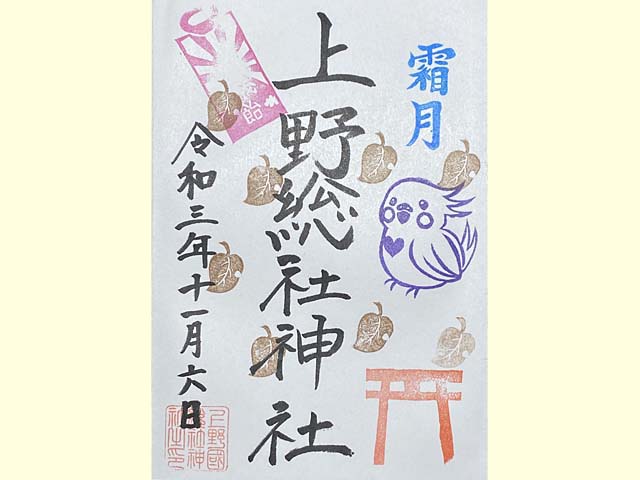 霜月
上野総社神社
令和三年十一月六日
飴
上野國
総社神
社之印